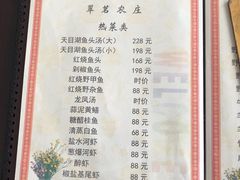 翠茗农庄
热菜类
天目湖鱼头汤(大) 228 元
天目湖鱼头汤(小) 198 元
红烧鱼头 168 元
剁椒鱼头 198 元
红烧野甲鱼 时价
红烧野杂鱼 88 元
龙凤汤 时价
蒜泥黄鳝 88 元
糖醋桂鱼 88 元
清蒸白鱼 88 元
盐水河虾 88 元
葱爆河虾 88 元
醉虾 88 元
椒盐基尾虾 88 元